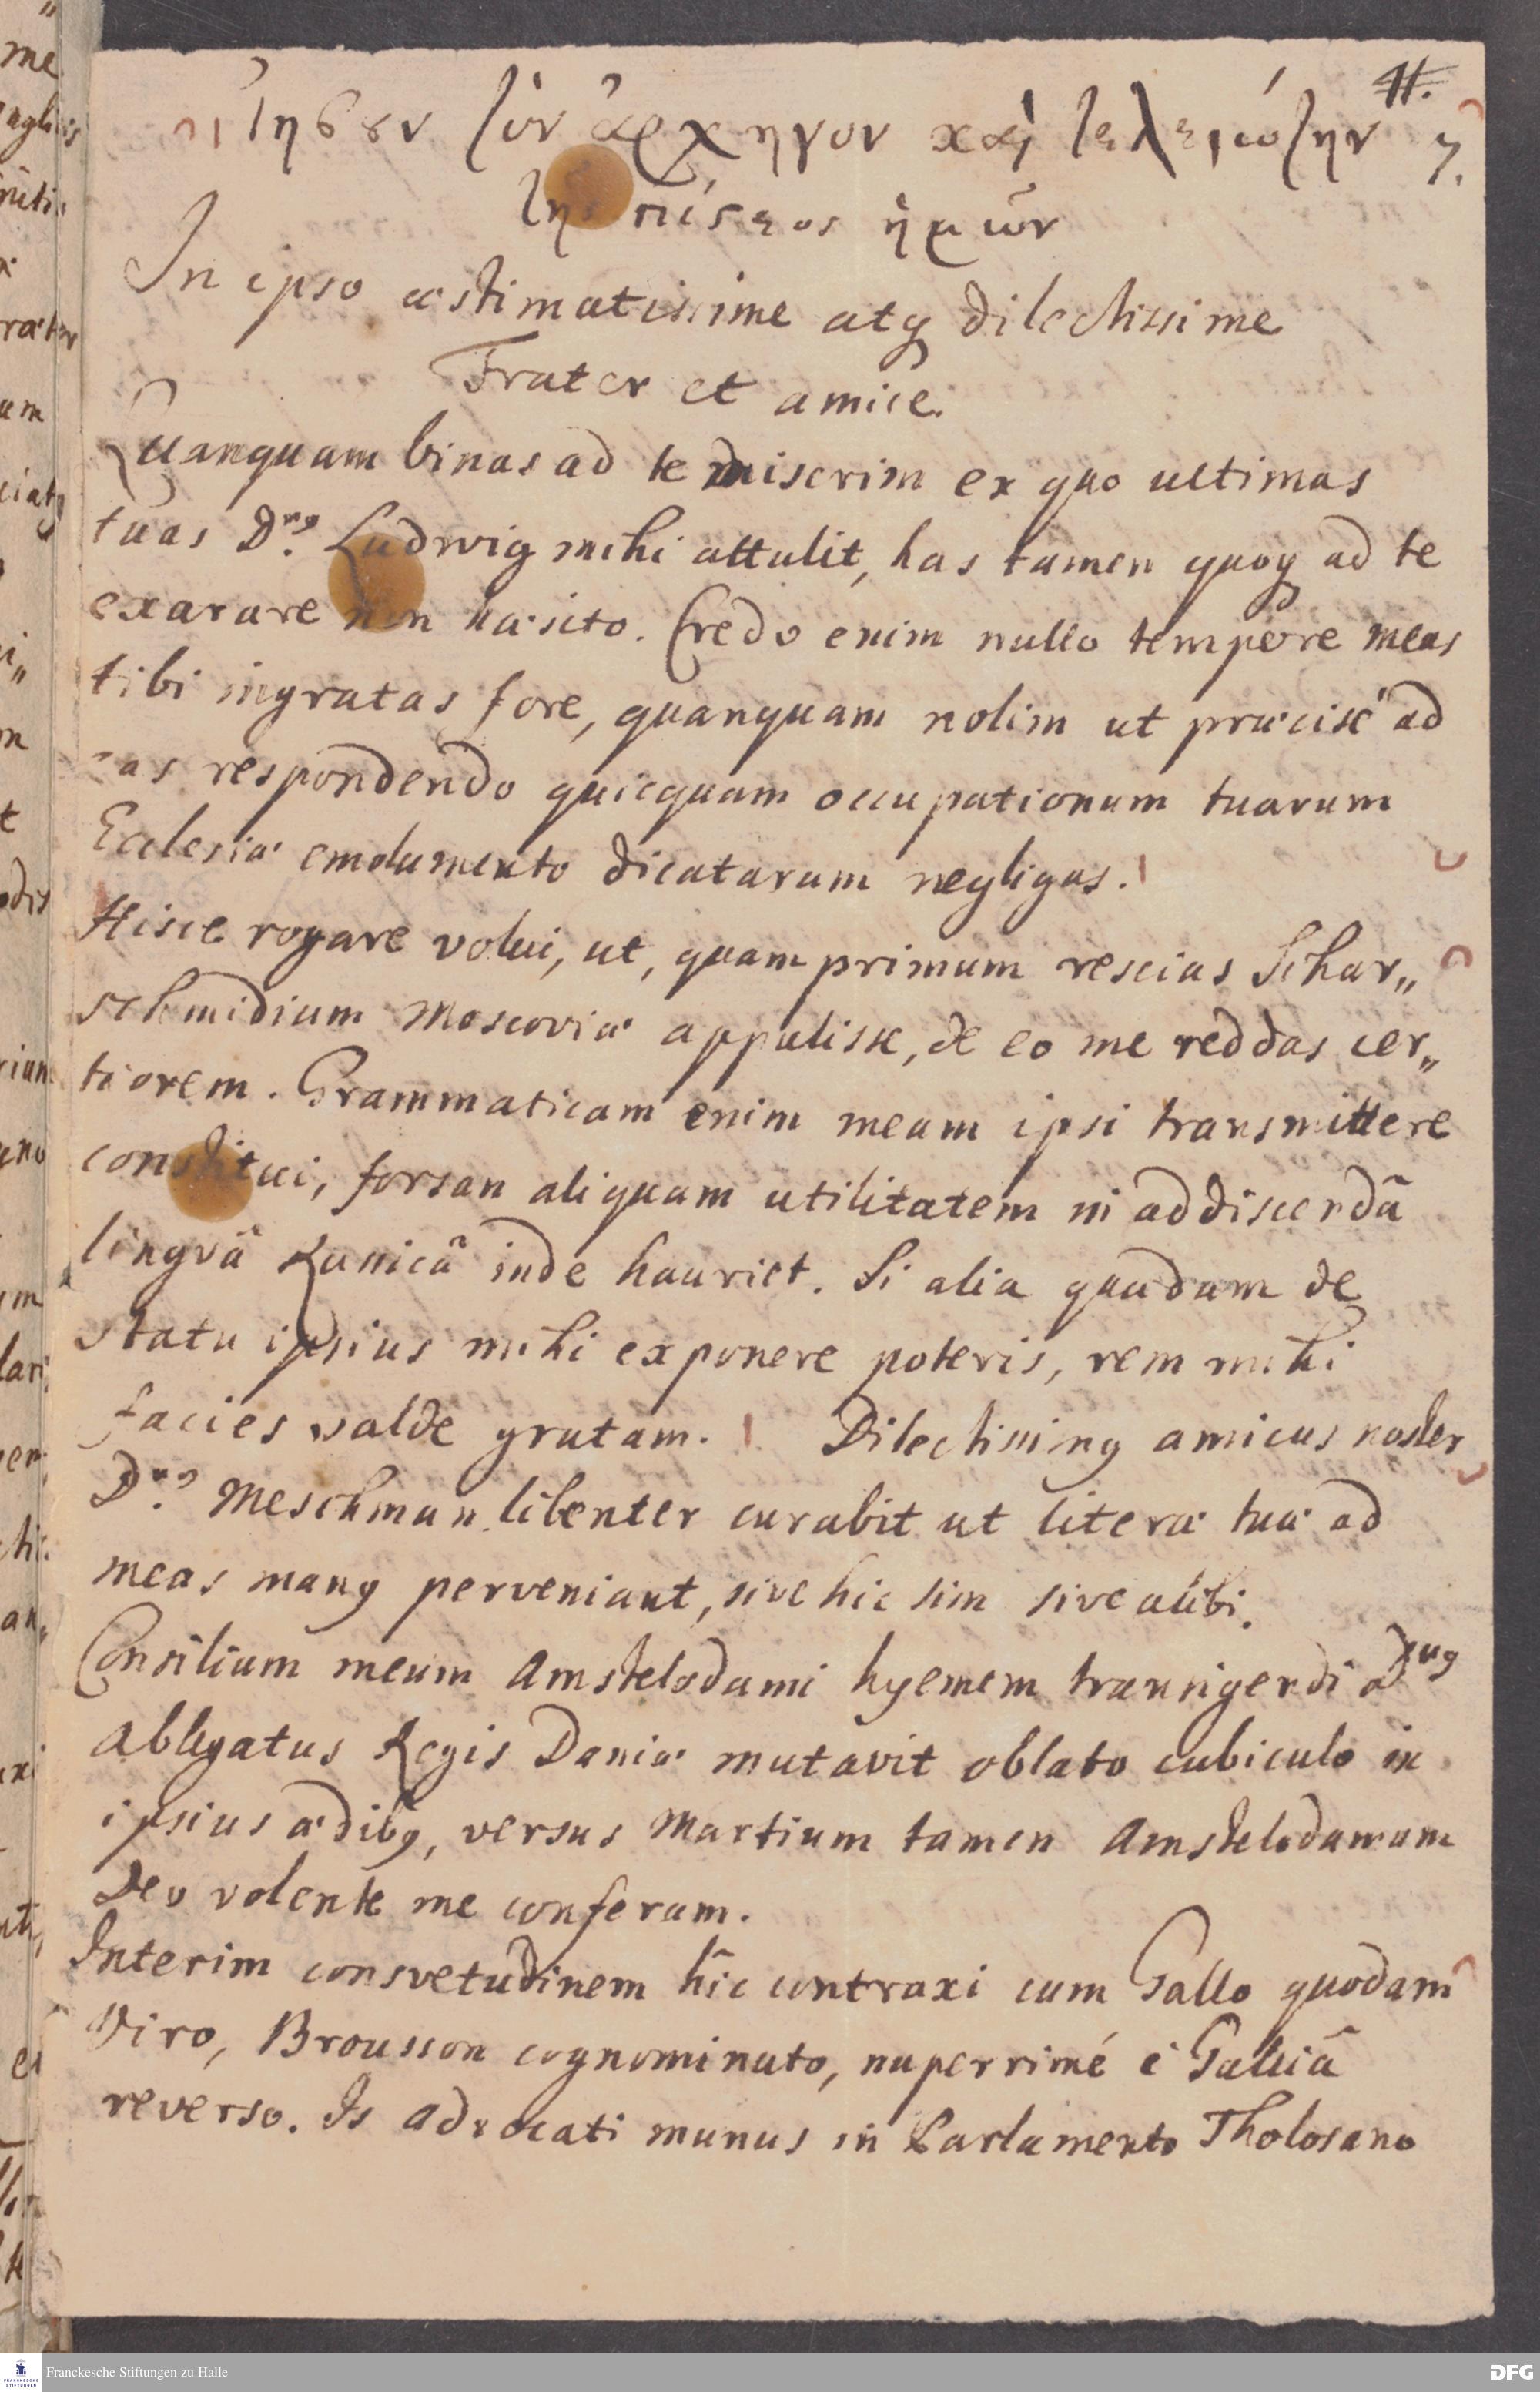 11.
Ἰησουν τὸν ἀρχηγον καὶ τελειώτην 7.
της πίστεος ἡμῶν
In ipso æstimatissime atq dilectissime
Frater et amice.
Quanquam binas ad te miserim ex quo ultimas
tuas D.nq Ludwig mihi attulit, has tamen quoq ad te
exarare non hæsito. Credo enim nullo tempore meas
tibi ingratas fore, quanquam nolim ut præcisè ad
eas respondendo quicquam occupationum tuarum
Ecclesiæ emolumento dicatarum negligas.
Hisce rogare volui, ut, quam primum rescias Schar„
schmidium Moscoviæ appulisse, de eo me reddas cer„
tiorem. Grammaticam enim meam ipsi transmittere
constitui, forsan aliquam utilitatem in addiscendâ
lingvâ Runicâ inde hauriet. Si alia quædam de
statu ipsius mihi exponere poteris, rem mihi
facies valdè gratam. Dilectissimq amicus noster
D.nq Meschman libenter curabit ut literæ tuæ ad
meas manq perveniant, sive hic sim sive alibi.
Consilium meum Amstelodami hyemem transigendi Dnq
Ablegatus Regis Daniæ mutavit oblato cubiculo in
ipsius ædibq, versus Martium tamen Amstelodamum
Deo volente me conferam.
Interim consvetudinem hîc contraxi cum Gallo quodam
Viro, Brousson cognominato, nuperrimé è Galliâ
reverso. Is Advocati munus in Parlamento Tholosano
Franckesche Stiftungen zu Halle
DFG